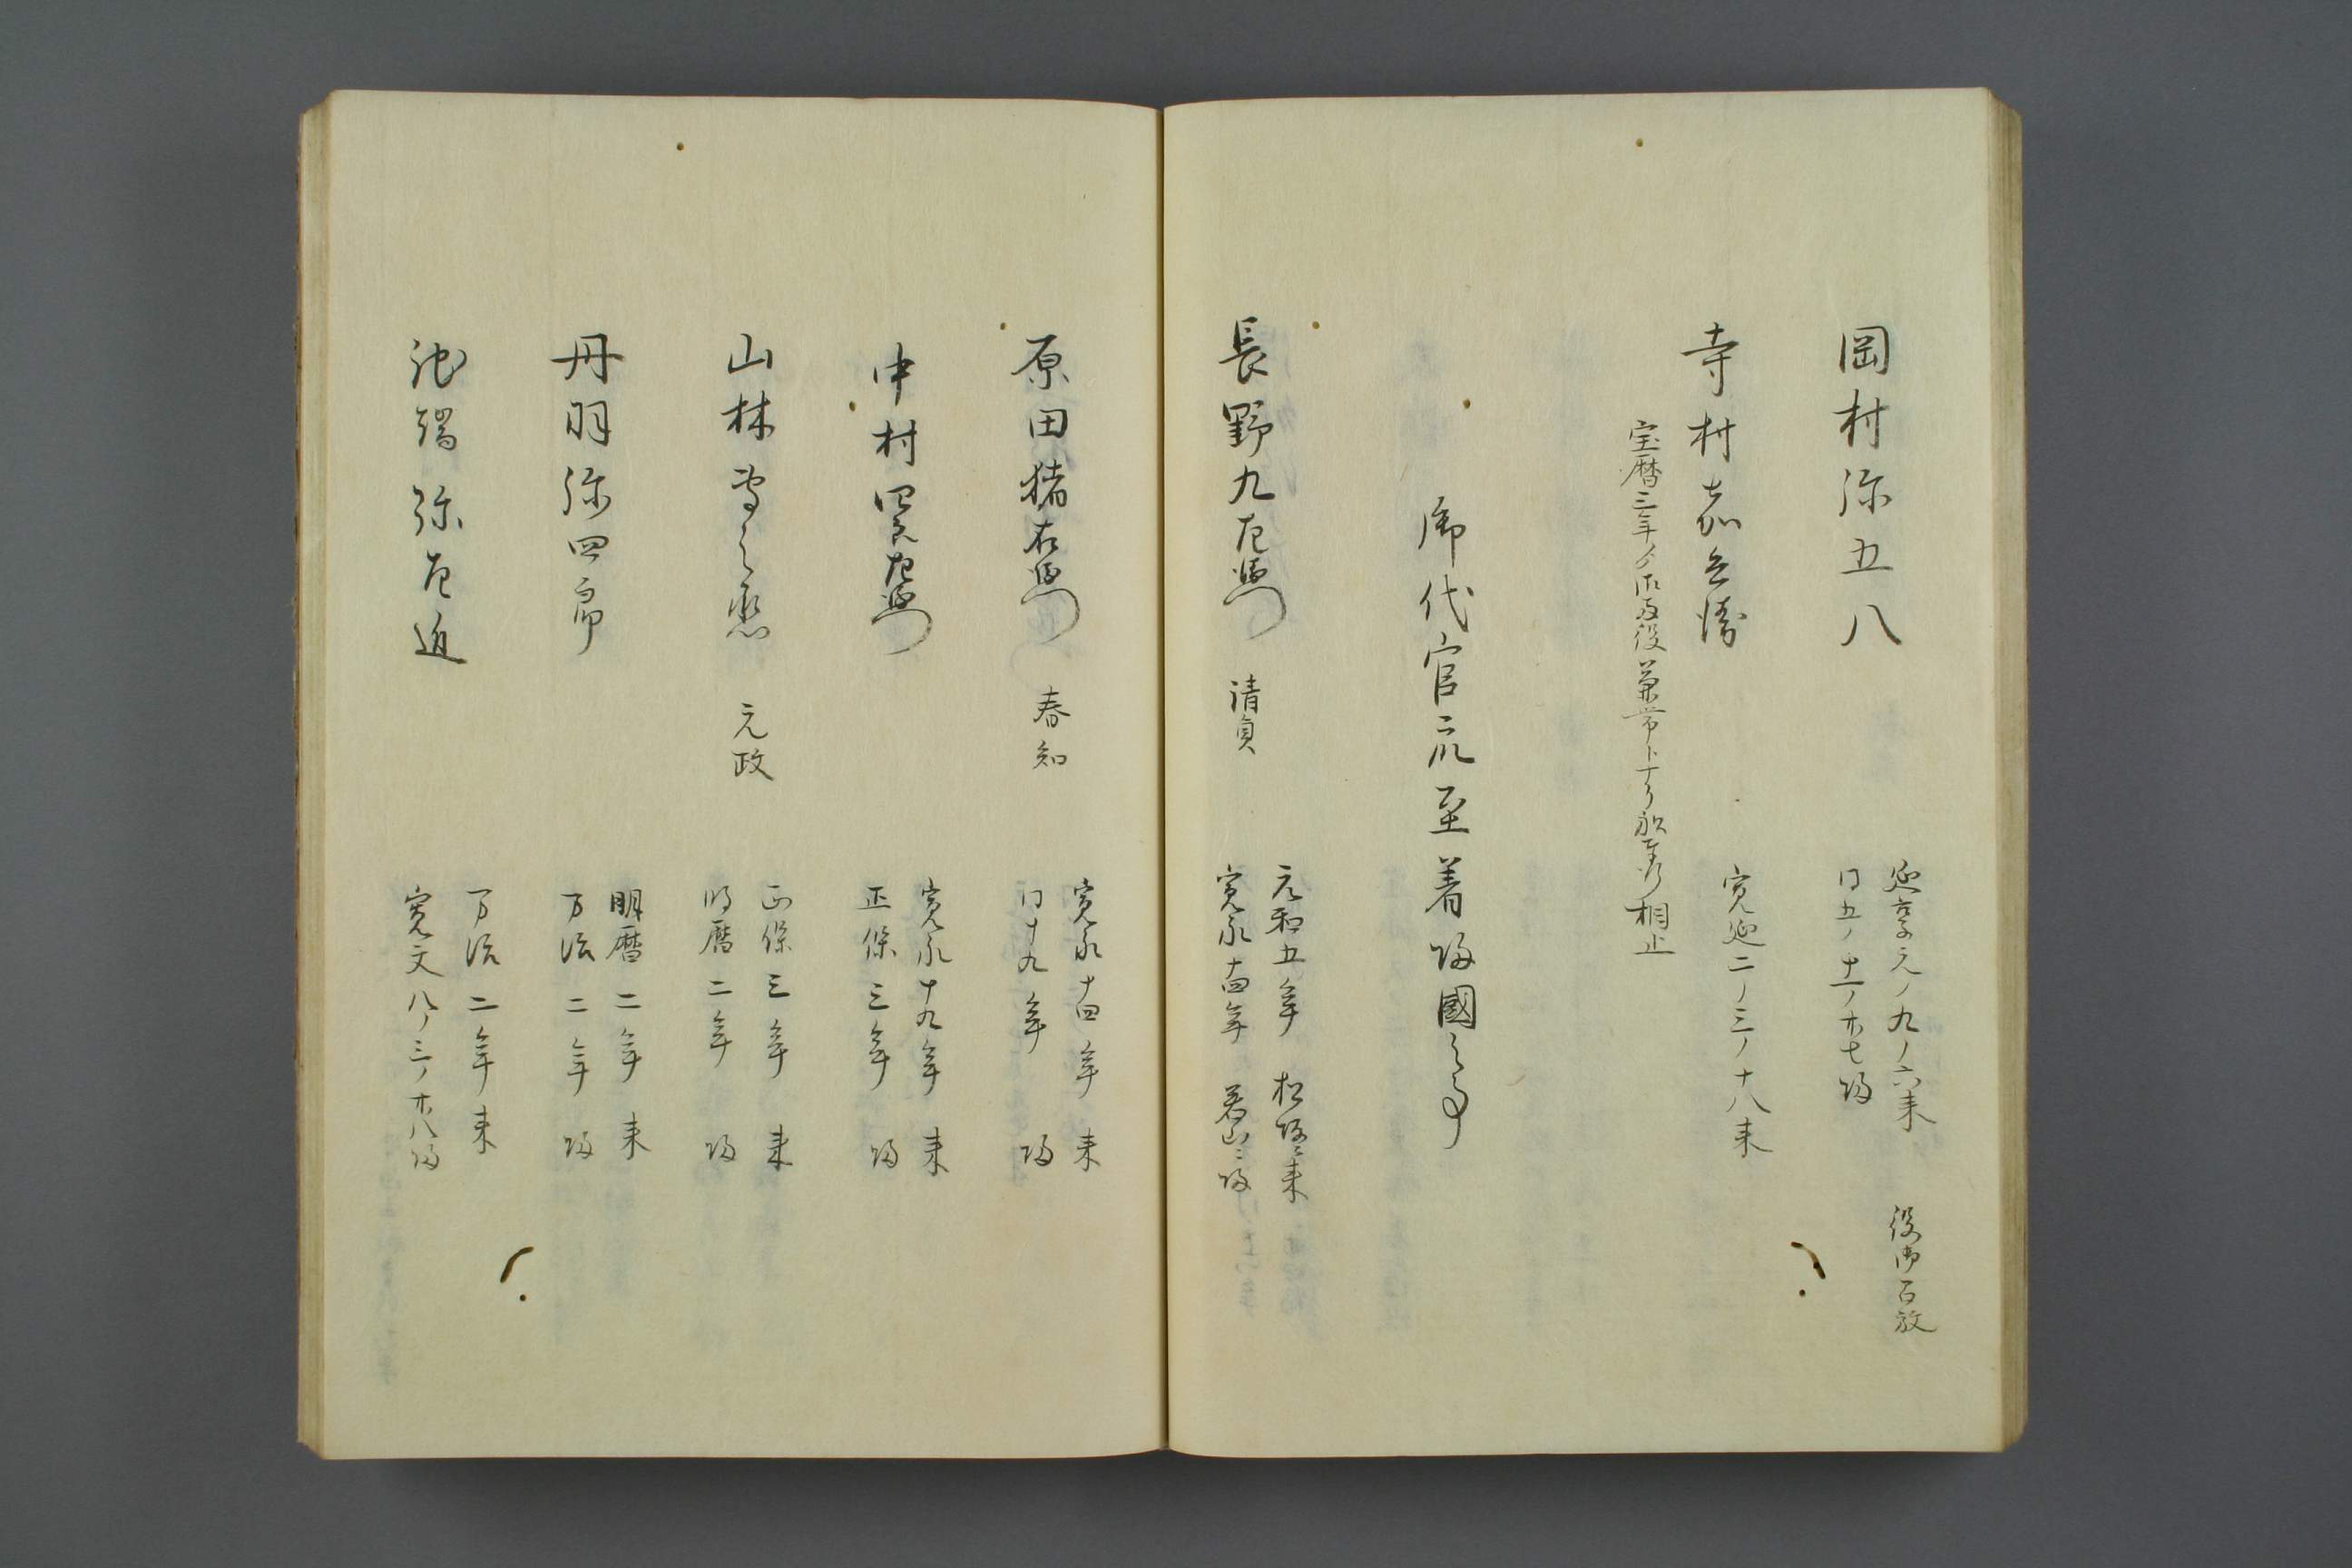 岡村弥五八
延享元ノ九ノ六来
同五ノ十一ノ廿七帰
役御召放
寺村嘉兵衛
寛延二ノ三ノ十八来
宝暦三年ゟ
役兼帯トナリ
相止
御代官
至着帰國之事
長野九左衛門
請負
元和五年 松坂ニ来
寛永十四年 若山ニ帰
原田猪右衛門
春知
寛永十四年 来
同十九年 帰
中村四郎左衛門
寛永十九年 来
正保三年 帰
山林
之丞
元政
正保三年 来
明暦二年 帰
丹羽弥四郎
明暦二年 来
万治二年 帰
池端弥左近
万治二年 来
寛文八ノ三ノ廿八帰